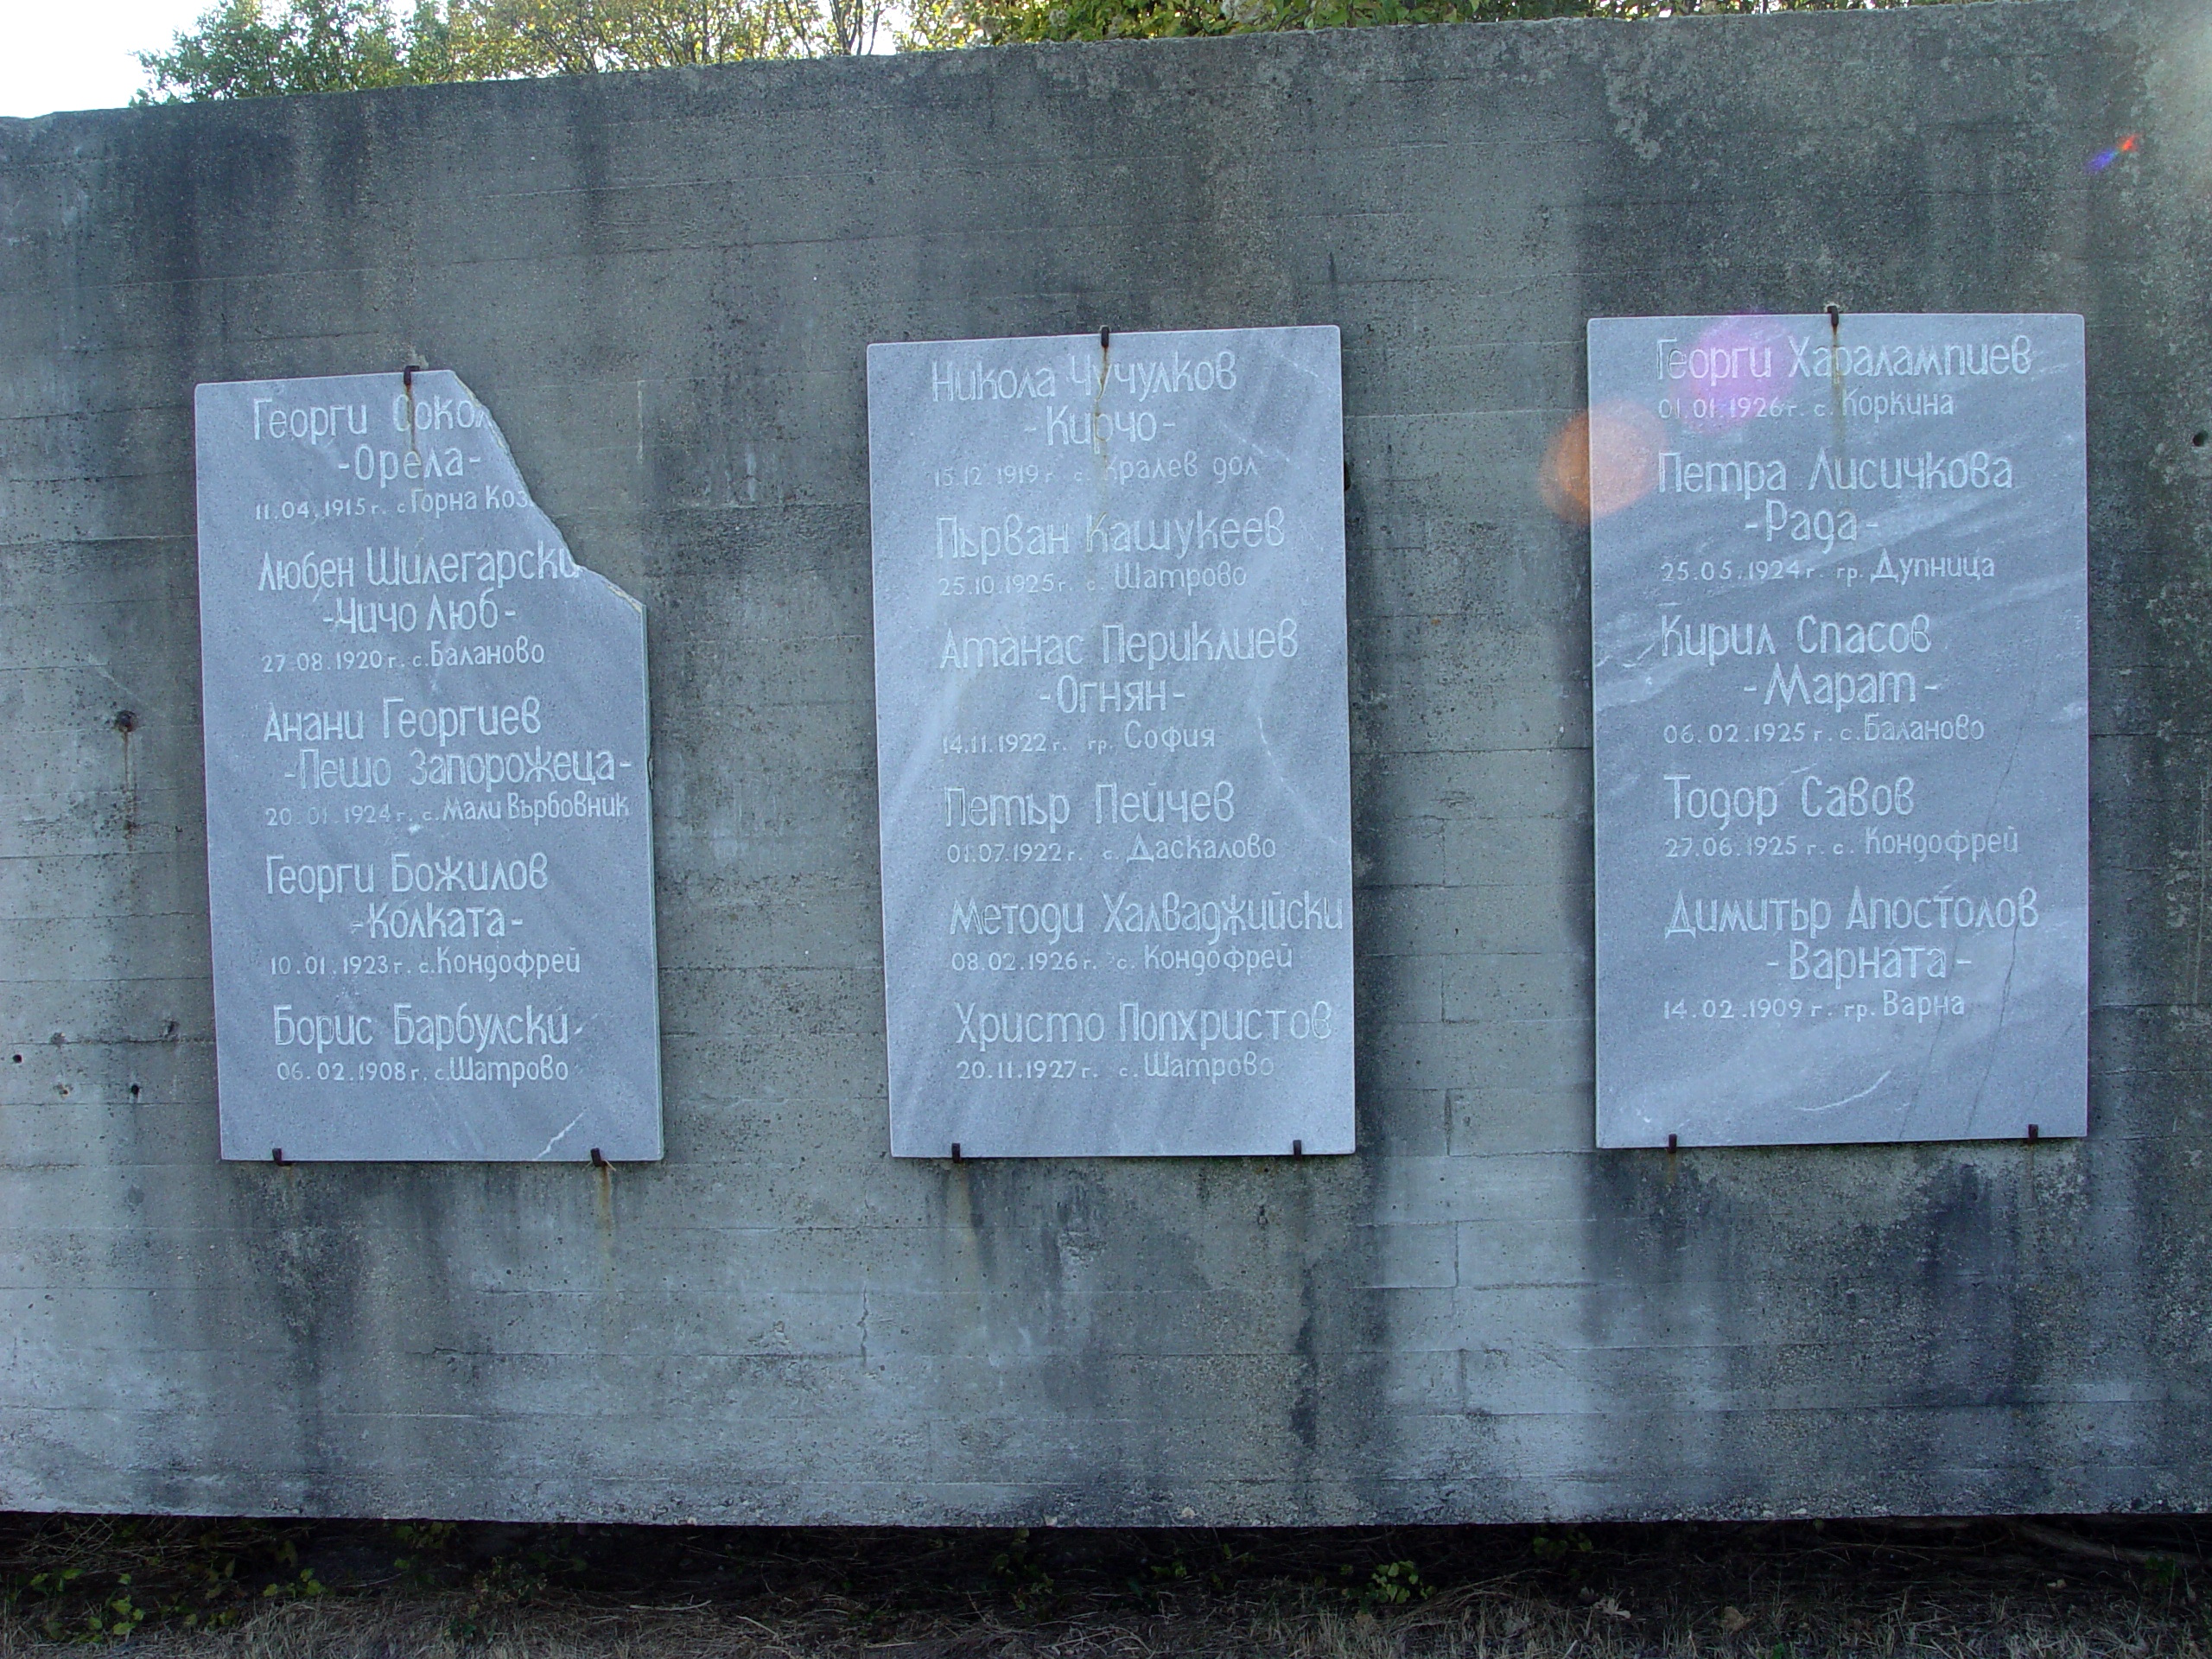 Георги Сокол
-Орела-
11.04.1915 г. с. Горна Коз
Любен Шилегарски
-Чичо Люб-
27.08.1920 г. с. Баланово
Анани Георгиев
-Пешо Запорожеца-
20.01.1924 г. с. Мали Върбовник
Георги Божилов
-Колката-
10.01.1923 г. с. Кондофрей
Борис Барбулски
06.02.1908 г. с. Шатрово
Никола Чучулков
-Кирчо-
15.12.1919 г. с. Кралев дол
Първан Кашукеев
25.10.1925 г. с. Шатрово
Атанас Периклиев
-Огнян-
14.11.1922 г. гр. София
Петър Пейчев
01.07.1922 г. с. Даскалово
Методи Халваджийски
08.02.1926 г. с. Кондофрей
Христо Попхристов
20.11.1927 г. с. Шатрово
Георги Харалампиев
01.01.1926 г. с. Коркина
Петра Лисичкова
-Рада-
25.05.1924 г. гр. Дупница
Кирил Спасов
-Марат-
06.02.1925 г. с. Баланово
Тодор Савов
27.06.1925 г. с. Кондофрей
Димитър Апостолов
-Варната-
14.02.1909 г. гр. Варна